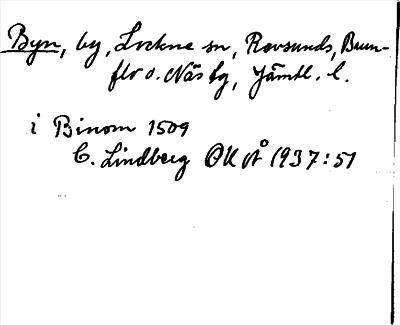 Byn, by, Lockne sn, Revsunds, Brun-
flo o. Näs tg, Jämtl. l.
i Binom 1509
C. Lindberg OKÅ 1937:51